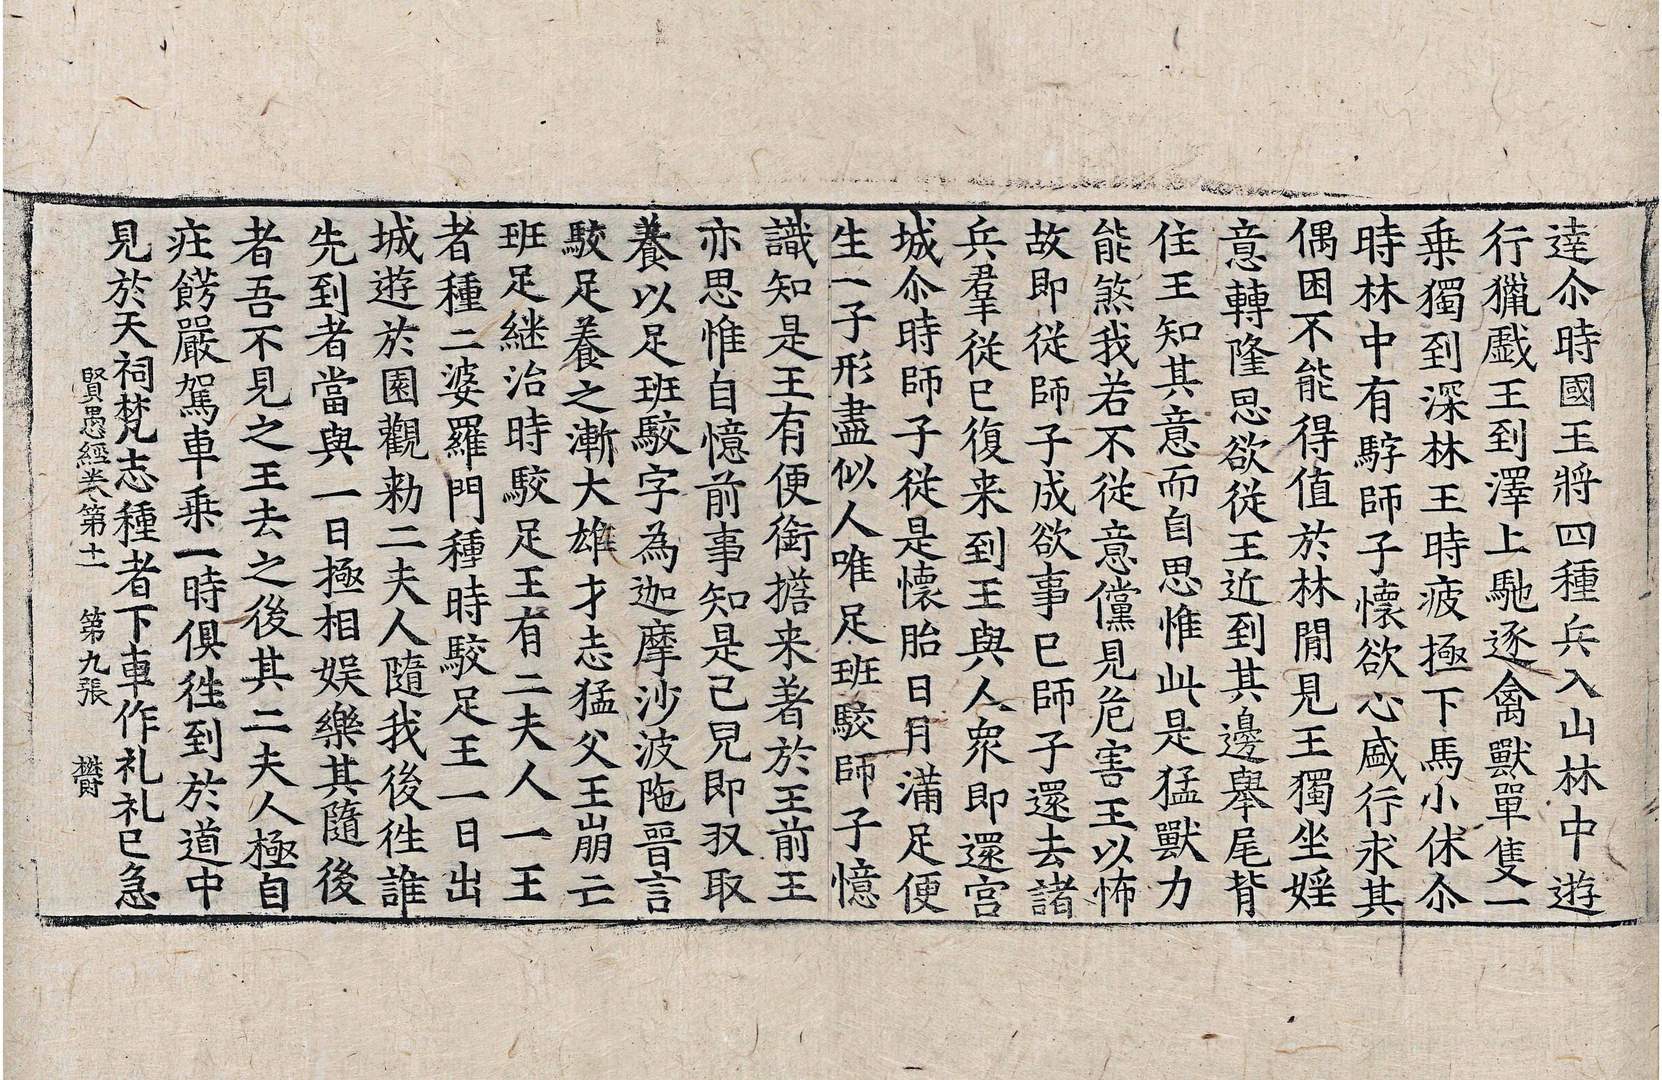 達尒時國王將四種兵入山林中遊
行獵戲王到澤上馳逐禽獸單隻一
乗獨到深林王時疲極下馬小休尒
時林中有騂師子懷欲心盛行求其
偶困不能得值於林閒見王獨坐婬
意轉隆思欲從王近到其邊舉尾背
住王知其意而自思惟此是猛獸力
能煞我若不從意儻見危害王以怖
故即從師子成欲事已師子還去諸
兵羣從已復来到王與人衆即還宮
城尒時師子從是懷胎日月滿足便
生一子形盡似人唯足班駮師子憶
識知是王有便銜擔来著於王前王
亦思惟自憶前事知是己兒即収取
養以足班駮字為迦摩沙波陁晉言
駮足養之漸大雄才志猛父王崩亡
班足継治時駮足王有二夫人一王
者種二婆羅門種時駮足王一日出
城遊於園觀勑二夫人隨我後徃誰
先到者當與一日極相娱樂其隨後
者吾不見之王去之後其二夫人極自
疘餝嚴駕車乗一時俱徃到於道中
見於天祠梵志種者下車作礼礼已急
賢愚經卷第十一 第九張 欝